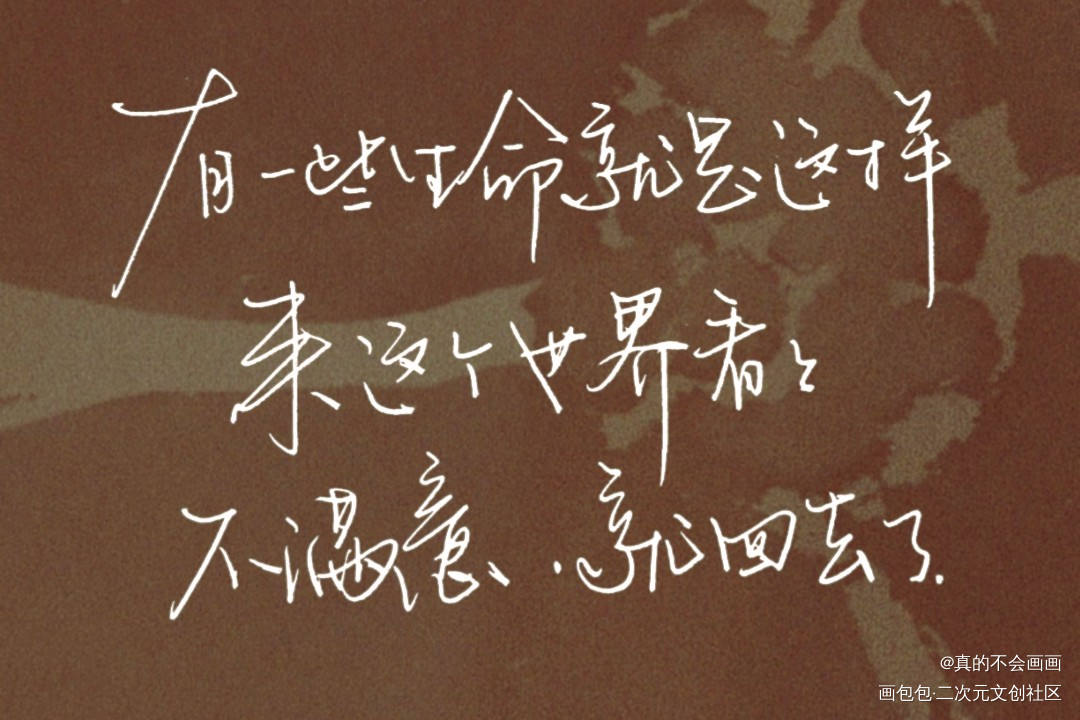 有一些生命就是这样
来这个世界看看
不满意.就回去了.
@真的不会画画
画包包·二次元文创社区